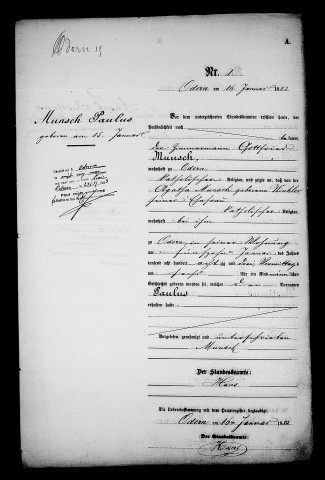 Odern 15
A.
Nr. 1
Odern am 16 Januar 1883
Munsch Paulus
geboren am 15. Januar
Vor dem unterzeichneten Standesbeamten erschien heute, der
Persönlichkeit nach
kannt,
der Zimmermann Gottfried
Munsch,
wohnhaft zu Odern,
katholischer Religion, und zeigte an, daß von der
Agatha Munsch geborene
seiner Ehefrau
katholischer Religion,
wohnhaft bei ihm
zu Odern, in seiner Wohnung
am fünfzehn Januar des Jahres
tausend acht hundert achtzig und drei Vormittags
um sechs Uhr ein Kind männlichen
Geschlechts geboren worden sei, welches den Vornamen
Paulus
erhalten habe
Vorgelesen, genehmigt und unterschrieben
Munsch
Der Standesbeamte:
Die Uebereinstimmung mit dem Hauptregister beglaubigt
Odern am 16ten Januar 1883
Der Standesbeamte: